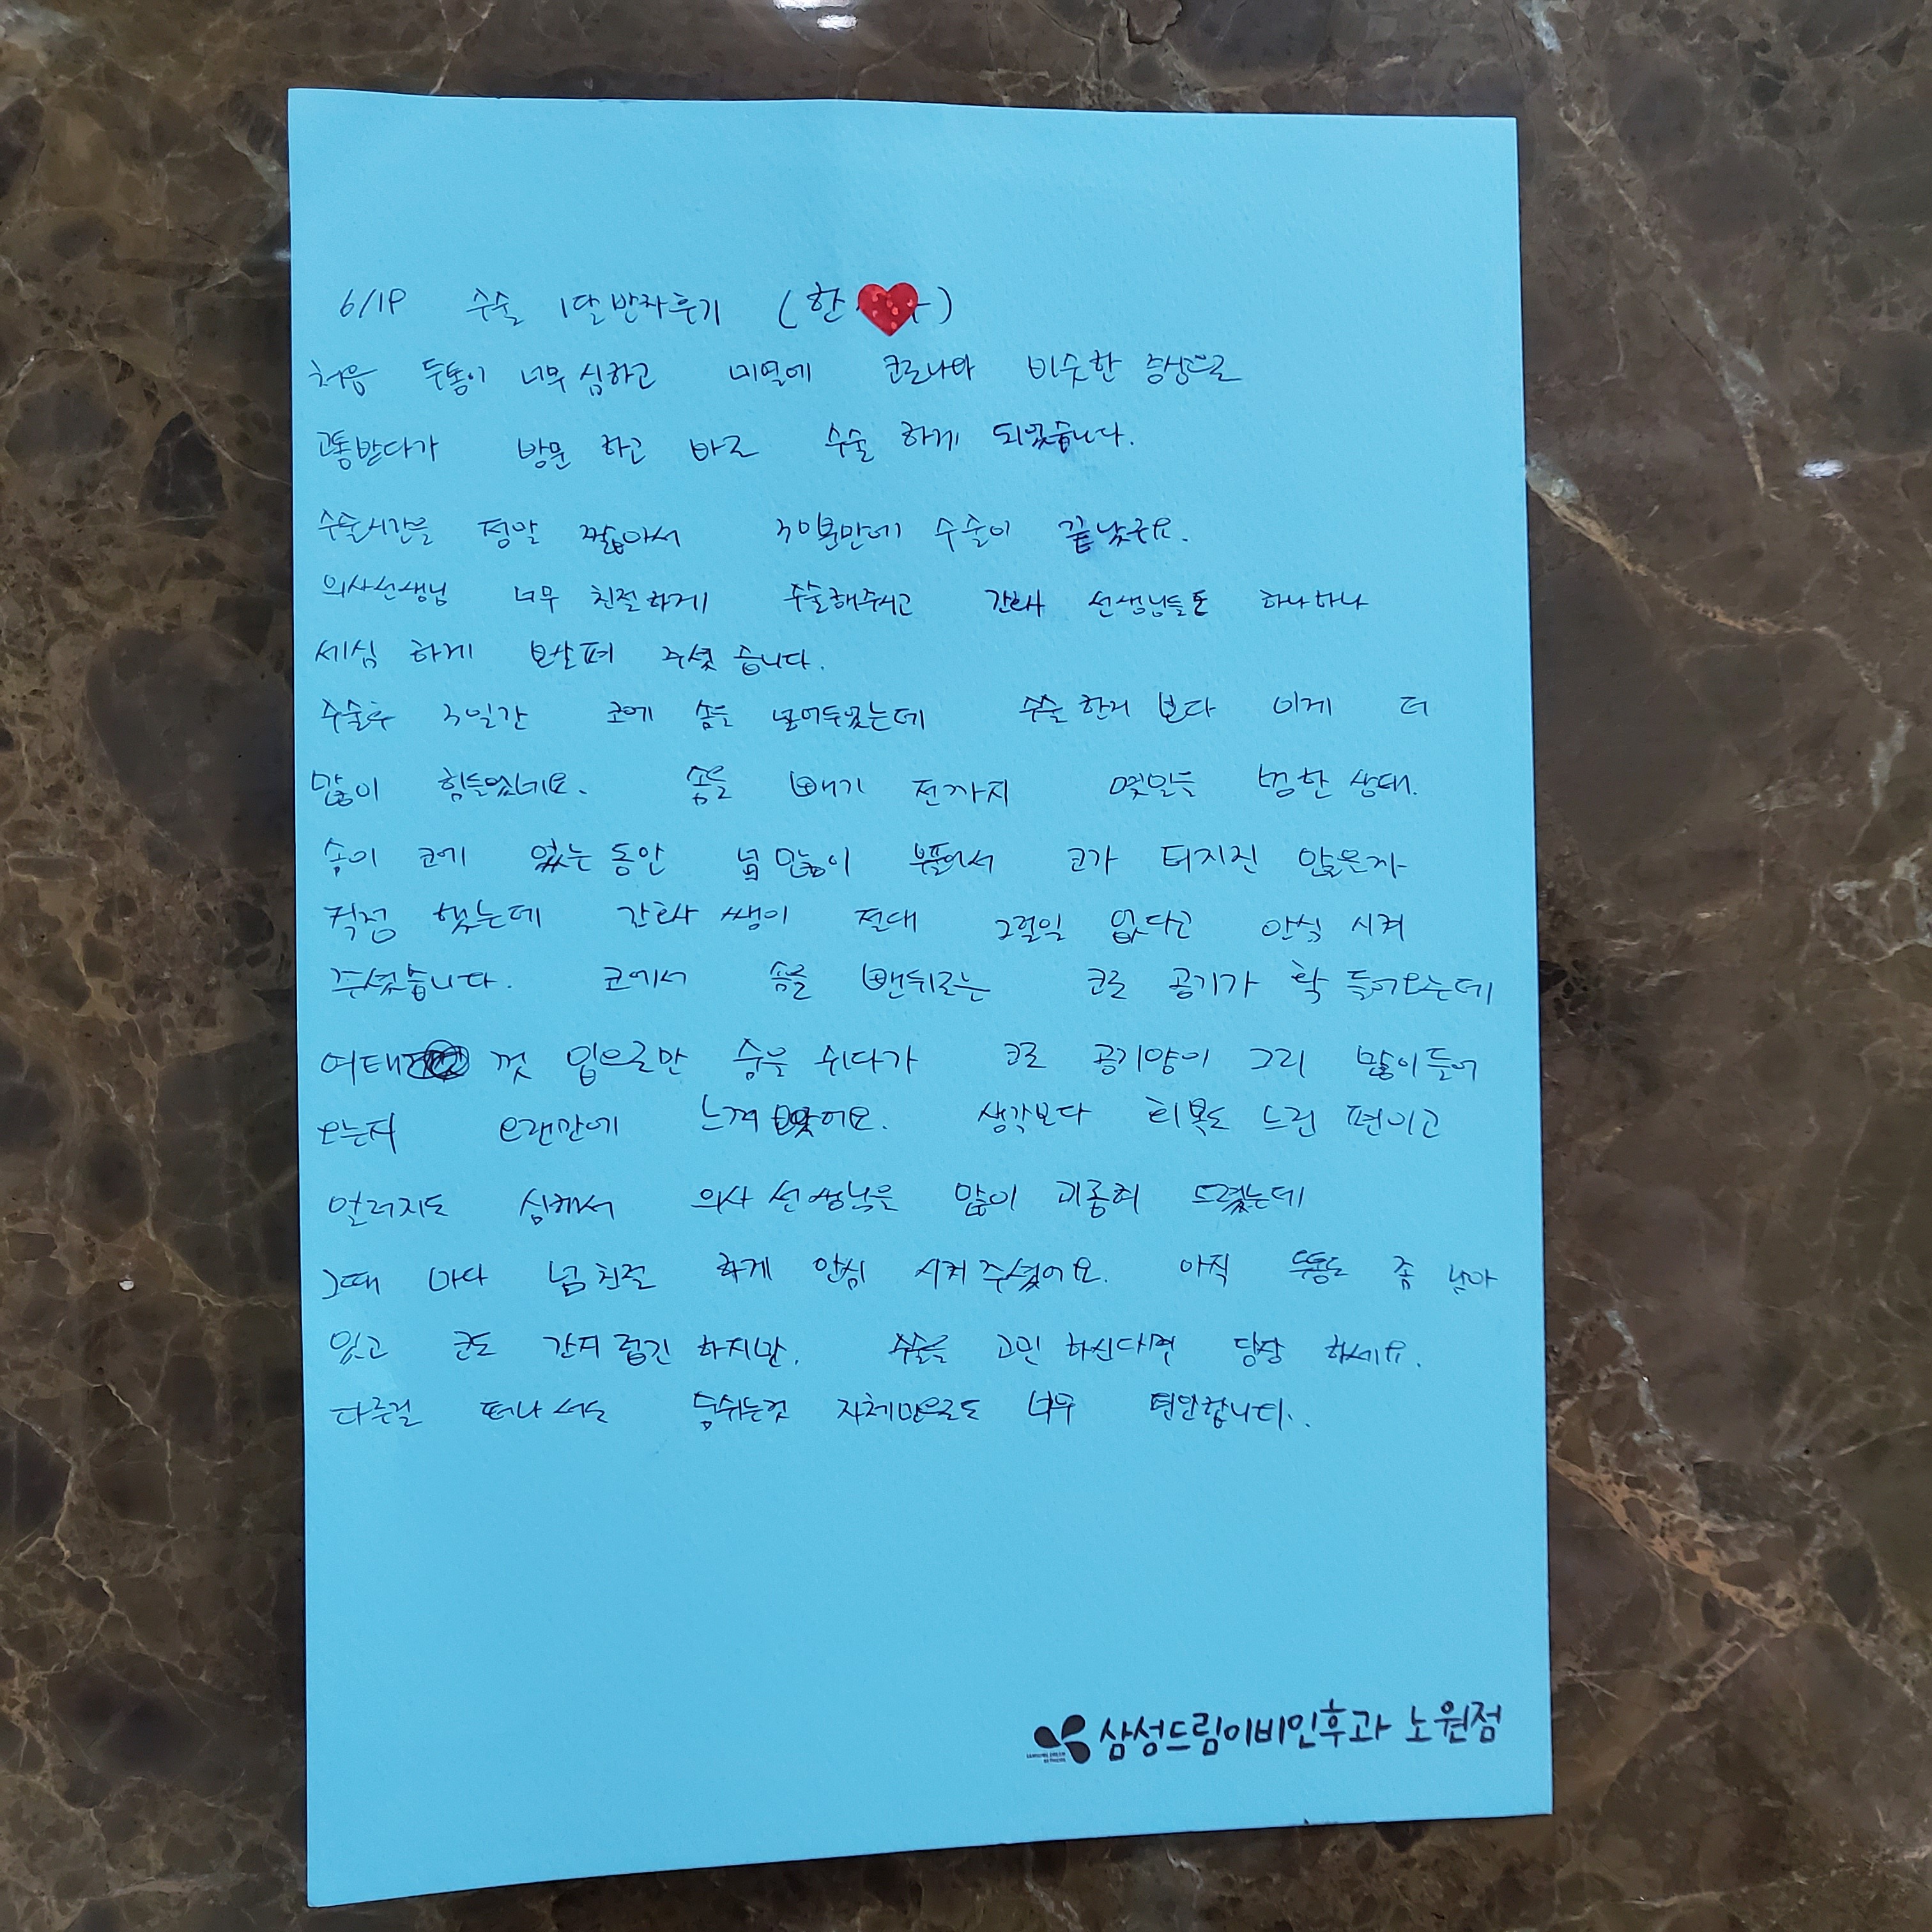 6/19 수술 1달반차후기 (한
처음 두통이 너무 심하고 미열에 코로나와 비슷한 증상으로
고통받다가 방문 하고 바로 수술 하게 되었습니다.
수술시간은 정말 짧아서 30분만에 수술이 끝났구요.
의사선생님 너무 친절하게 수술해주시고 간호사 선생님들도 하나하나
세심 하게 보살펴 주셨 습니다.
수술후 3일간 코에 솜을 넣어두었는데 수술 한거 보다 이게 더
많이 힘들었네요. 솜을 빼기 전까지 몇일은 멍한 상태.
솜이 코에 있는 동안 넘 많이 부풀어서 코가 터지진 않을까
걱정 했는데 간호사 쌤이 절대 그럴일 없다고 안심 시켜
주셨습니다. 코에서 솜을 뺀뒤로는 코로 공기가 확 들어오는데
여태 껏 입으로만 숨을 쉬다가 코로 공기양이 그리 많이 들어
오는지 오랜만에 느껴 봤어요. 생각보다 회복도 느린 편이고
알러지도 심해서 의사 선생님을 많이 괴롭혀 드렸는데
그때 마다 넘 친절 하게 안심 시켜 주셨어요. 아직 통증도 좀 남아
있고 코도 간지 럽긴 하지만, 수술을 고민 하신다면 당장 하세요.
다른걸 떠나 서도 숨쉬는것 자체만으로도 너무 편안합니다..
삼성드림이비인후과 노원점